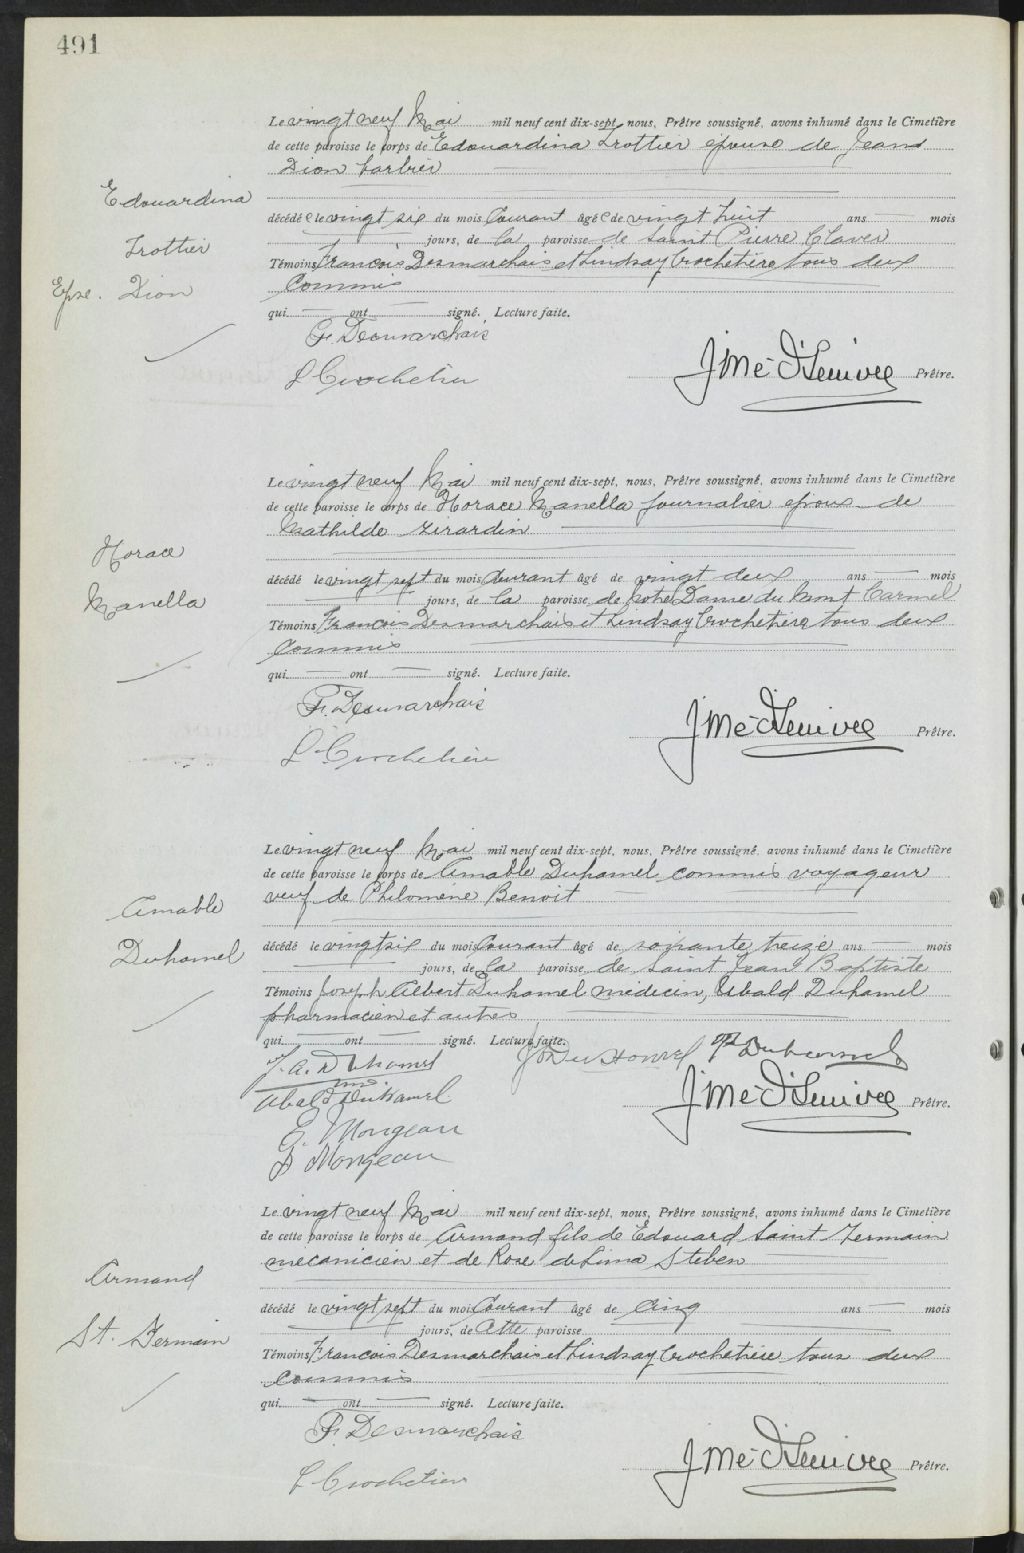 491
Le vingt neuf Mai mil neuf cent dix-sept, nous, Prêtre soussigné, avons inhumé dans le Cimetière
de cette paroisse le corps de Edouardina Trottier épouse de Jean
Dion barbier
Edouardina
Trottier
Epse. Dion
décédé e le vingt six du mois Courant âgé e de vingt huit ans — mois
— jours, de la paroisse de Saint Pierre Claver
Témoins Francois Desmarchais et Lindsay Crochetière tous deux
Commis
qui — ont — signé. Lecture faite.
F. Desmarchais
L Crochetière
Prêtre.
Le vingt neuf Mai mil neuf cent dix-sept, nous, Prêtre soussigné, avons inhumé dans le Cimetière
de cette paroisse le corps de Horace Manella journalier époux de
Mathilde Girardin
Horace
Manella
décédé le vingt sept du mois Courant âgé de vingt deux ans — mois
— jours, de la paroisse de Notre Dame du Mont Carmel
Témoins Francois Desmarchais et Lindsay Crochetière tous deux
Commis
qui — ont — signé. Lecture faite.
F. Desmarchais
L. Crochetière
Prêtre.
Le vingt neuf Mai mil neuf cent dix-sept, nous, Prêtre soussigné, avons inhumé dans le Cimetière
de cette paroisse le corps de Amable Duhamel commis voyageur
veuf de Philomène Benoit
Amable
Duhamel
décédé le vingt six du mois Courant âgé de soixante treize ans — mois
— jours, de la paroisse de Saint Jean Baptiste
Témoins Joseph Albert Duhamel médecin, Ubald Duhamel
pharmacien et autres
qui — ont — signé. Lecture faite.
J. A. Duhamel
Duhamel
Ubald Duhamel
Prêtre.
E. Mongeau
Mongeau
Le vingt neuf Mai mil neuf cent dix-sept, nous, Prêtre soussigné, avons inhumé dans le Cimetière
de cette paroisse le corps de Armand fils de Edouard Saint Germain
mécanicien et de Rose de Lima Steben
Armand
St. Germain
décédé le vingt sept du mois Courant âgé de Cinq ans — mois
— jours, de Cette paroisse
Témoins Francois Desmarchais et Lindsay Crochetière tous deux
Commis
qui — ont — signé. Lecture faite.
F. Desmarchais
L Crochetière
Prêtre.